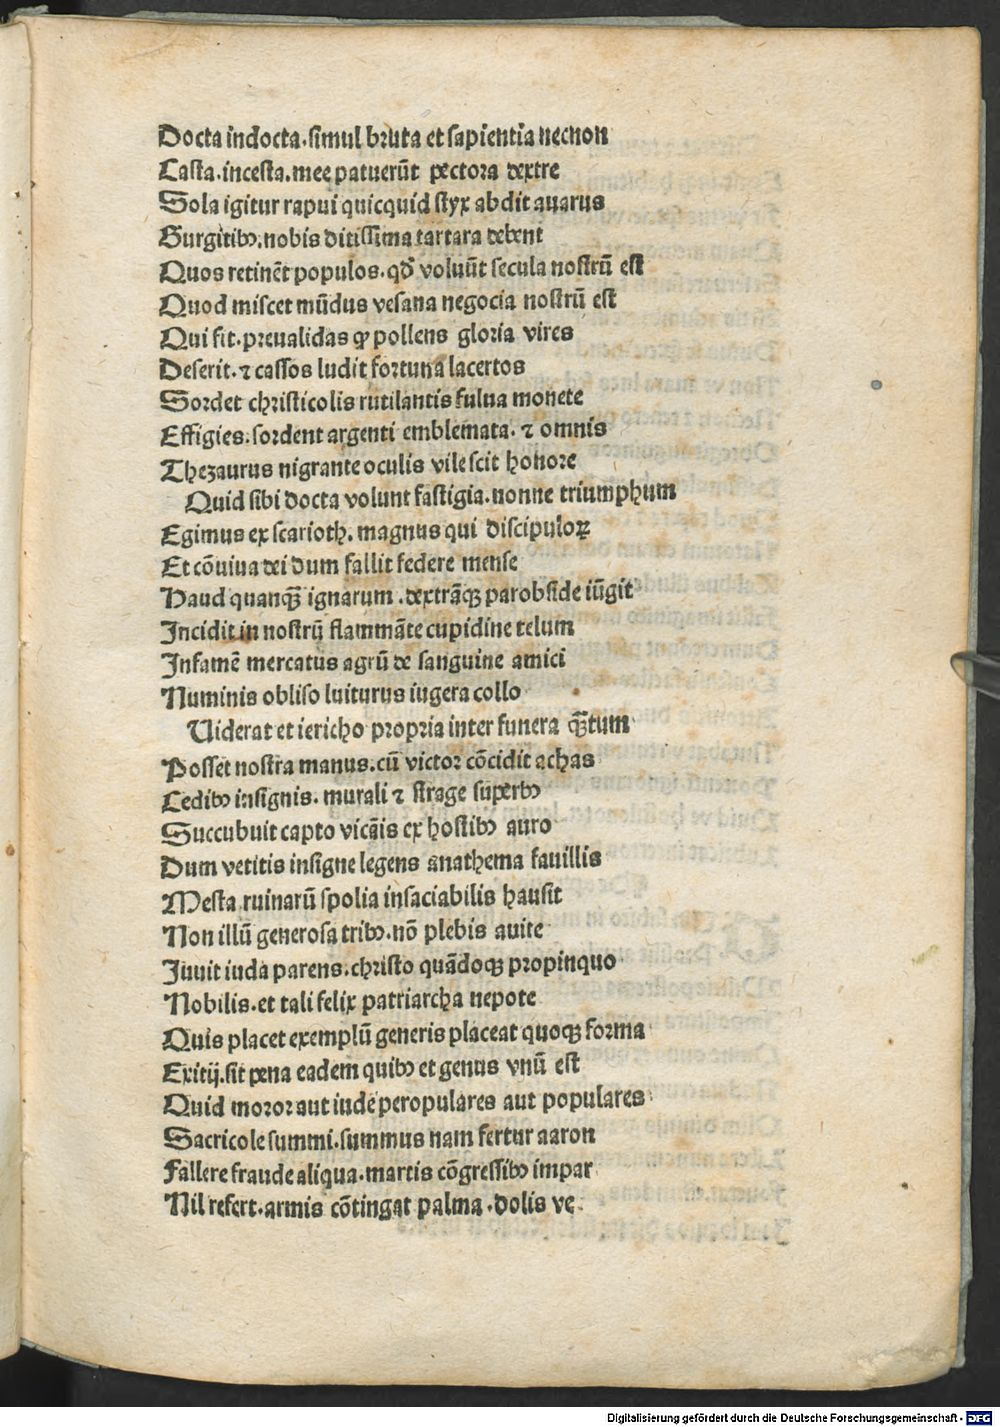 Docta indocta.simul bruta et sapientia necnon
Casta.incesta.mee patuerūt pectora dextre
Sola igitur rapui quicquid styx abdit auarus
Gurgitibꝰ.nobis ditissima tartara debent
Quos retinēt populos.qđ voluūt secula nostrū est
Quod miscet mūdus vesana negocia nostrū est
Qui fit.preualidas ꝙ pollens gloria vires
Deserit.⁊ cassos ludit fortuna lacertos
Sordet christicolis rutilantis fulua monete
Effigies.sordent argenti emblemata.⁊ omnis
Thezaurus nigrante oculis vilescit honore
Quid sibi docta volunt fastigia.nonne triumphum
Egimus ex scarioth.magnus qui discipuloꝝ
Et cōuiua dei dum fallit federe mense
Haud quanqꝫ ignarum.dextrāqꝫ parobside iūgit
Incidit in nostrū flammāte cupidine telum
Infamē mercatus agrū de sanguine amici
Numinis obliso luiturus iugera collo
Uiderat et iericho propria inter funera qꝫtum
Posset nostra manus.cū victor cōcidit achas
Cedibꝰ insignis.murali ⁊ strage superbꝰ
Succubuit capto vicāis ex hostibꝰ auro
Dum vetitis insigne legens anathema fauillis
Mesta ruinarū spolia insaciabilis hausit
Non illū generosa tribꝰ.nō plebis auite
Juuit iuda parens.christo quādoqꝫ propinquo
Nobilis.et tali felix patriarcha nepote
Quis placet exemplū generis placeat quoqꝫ forma
Exitij.sit pena eadem quibꝰ et genus vnū est
Quid moror aut iude peropulares aut populares
Sacricole summi.summus nam fertur aaron
Fallere fraude aliqua.martis cōgressibꝰ impar
Nil refert.armis cōtingat palma.dolis ve.
Digitalisierung gefördert durch die Deutsche Forschungsgemeinschaft - DFG